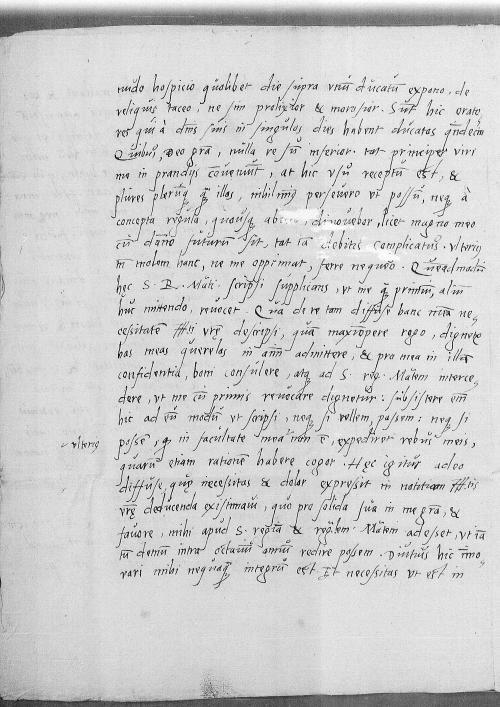 nudo hospicio quolibet die supra vnũ ducatũ expono, de
reliquis taceo, ne sim prolixior & morosior. Sunt hic orato
res qui à dñis suis in singulos dies habent ducatos qndecim
Quibus, Deo grã, nulla re sũ inferior. tot principes viri
in prandijs conueniũt, at hic vsu receptũ est, &
plures plerũq illos, nihilominus perseuero vt possũ, neq à
concepta regula, quousq dimouebor, licet magno meo
cũ dãno futurũ sit, tot iã debitis complicatus. vlterius
tñ molem hanc, ne me opprimat, ferre nequeo. Queadmodũ
hęc S. R. Mãti. scripsi supplicans, vt me q̃ primũ, aliũ
huc mittendo, reuocet. Quã de re tam diffuse hanc meã ne
cessitatem vrę descripsi, quã maxiopere rogo, dignetr
has meas querelas in añm admittere, & pro mea in illã
confidentia, boni consulere, atq ad S. reg. Mãtem interce
dere, vt me cũ primis reuocare dignetur: subsistere em̃
hic ad eũ modũ vt scripsi, neq si vellem, possem: neq si
possẽ, q in facultate mea non ẽ, expediret rebus meis,
vlterius
quarũ etiam rationẽ habere cogor. Hęc igitur adeo
diffuse, quę necessitas & dolor expressit in notitiam
vrę deducenda existimaui, quo pro solida sua in me grã, &
fauore, mihi apud S. regiã & Mãtem adesset, vt iã
tũ demũ intra octauũ annũ redire possem. Diutius hic im̃o
rari mihi nequaq integrũ est. Et necessitas vt est in